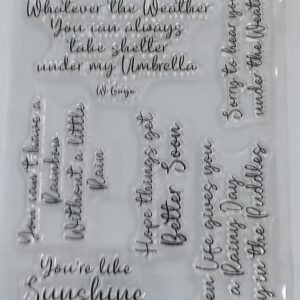 Whatever the Weather
You can always
take shelter
under my Umbrella
Sorry to hear you
under the Weat
You can't have a
Rainbow
Without a little
Rain
Hope things get
Better Soon
en Life gives you
a Rainy Day
y in the Puddles
You're like
Sunshine